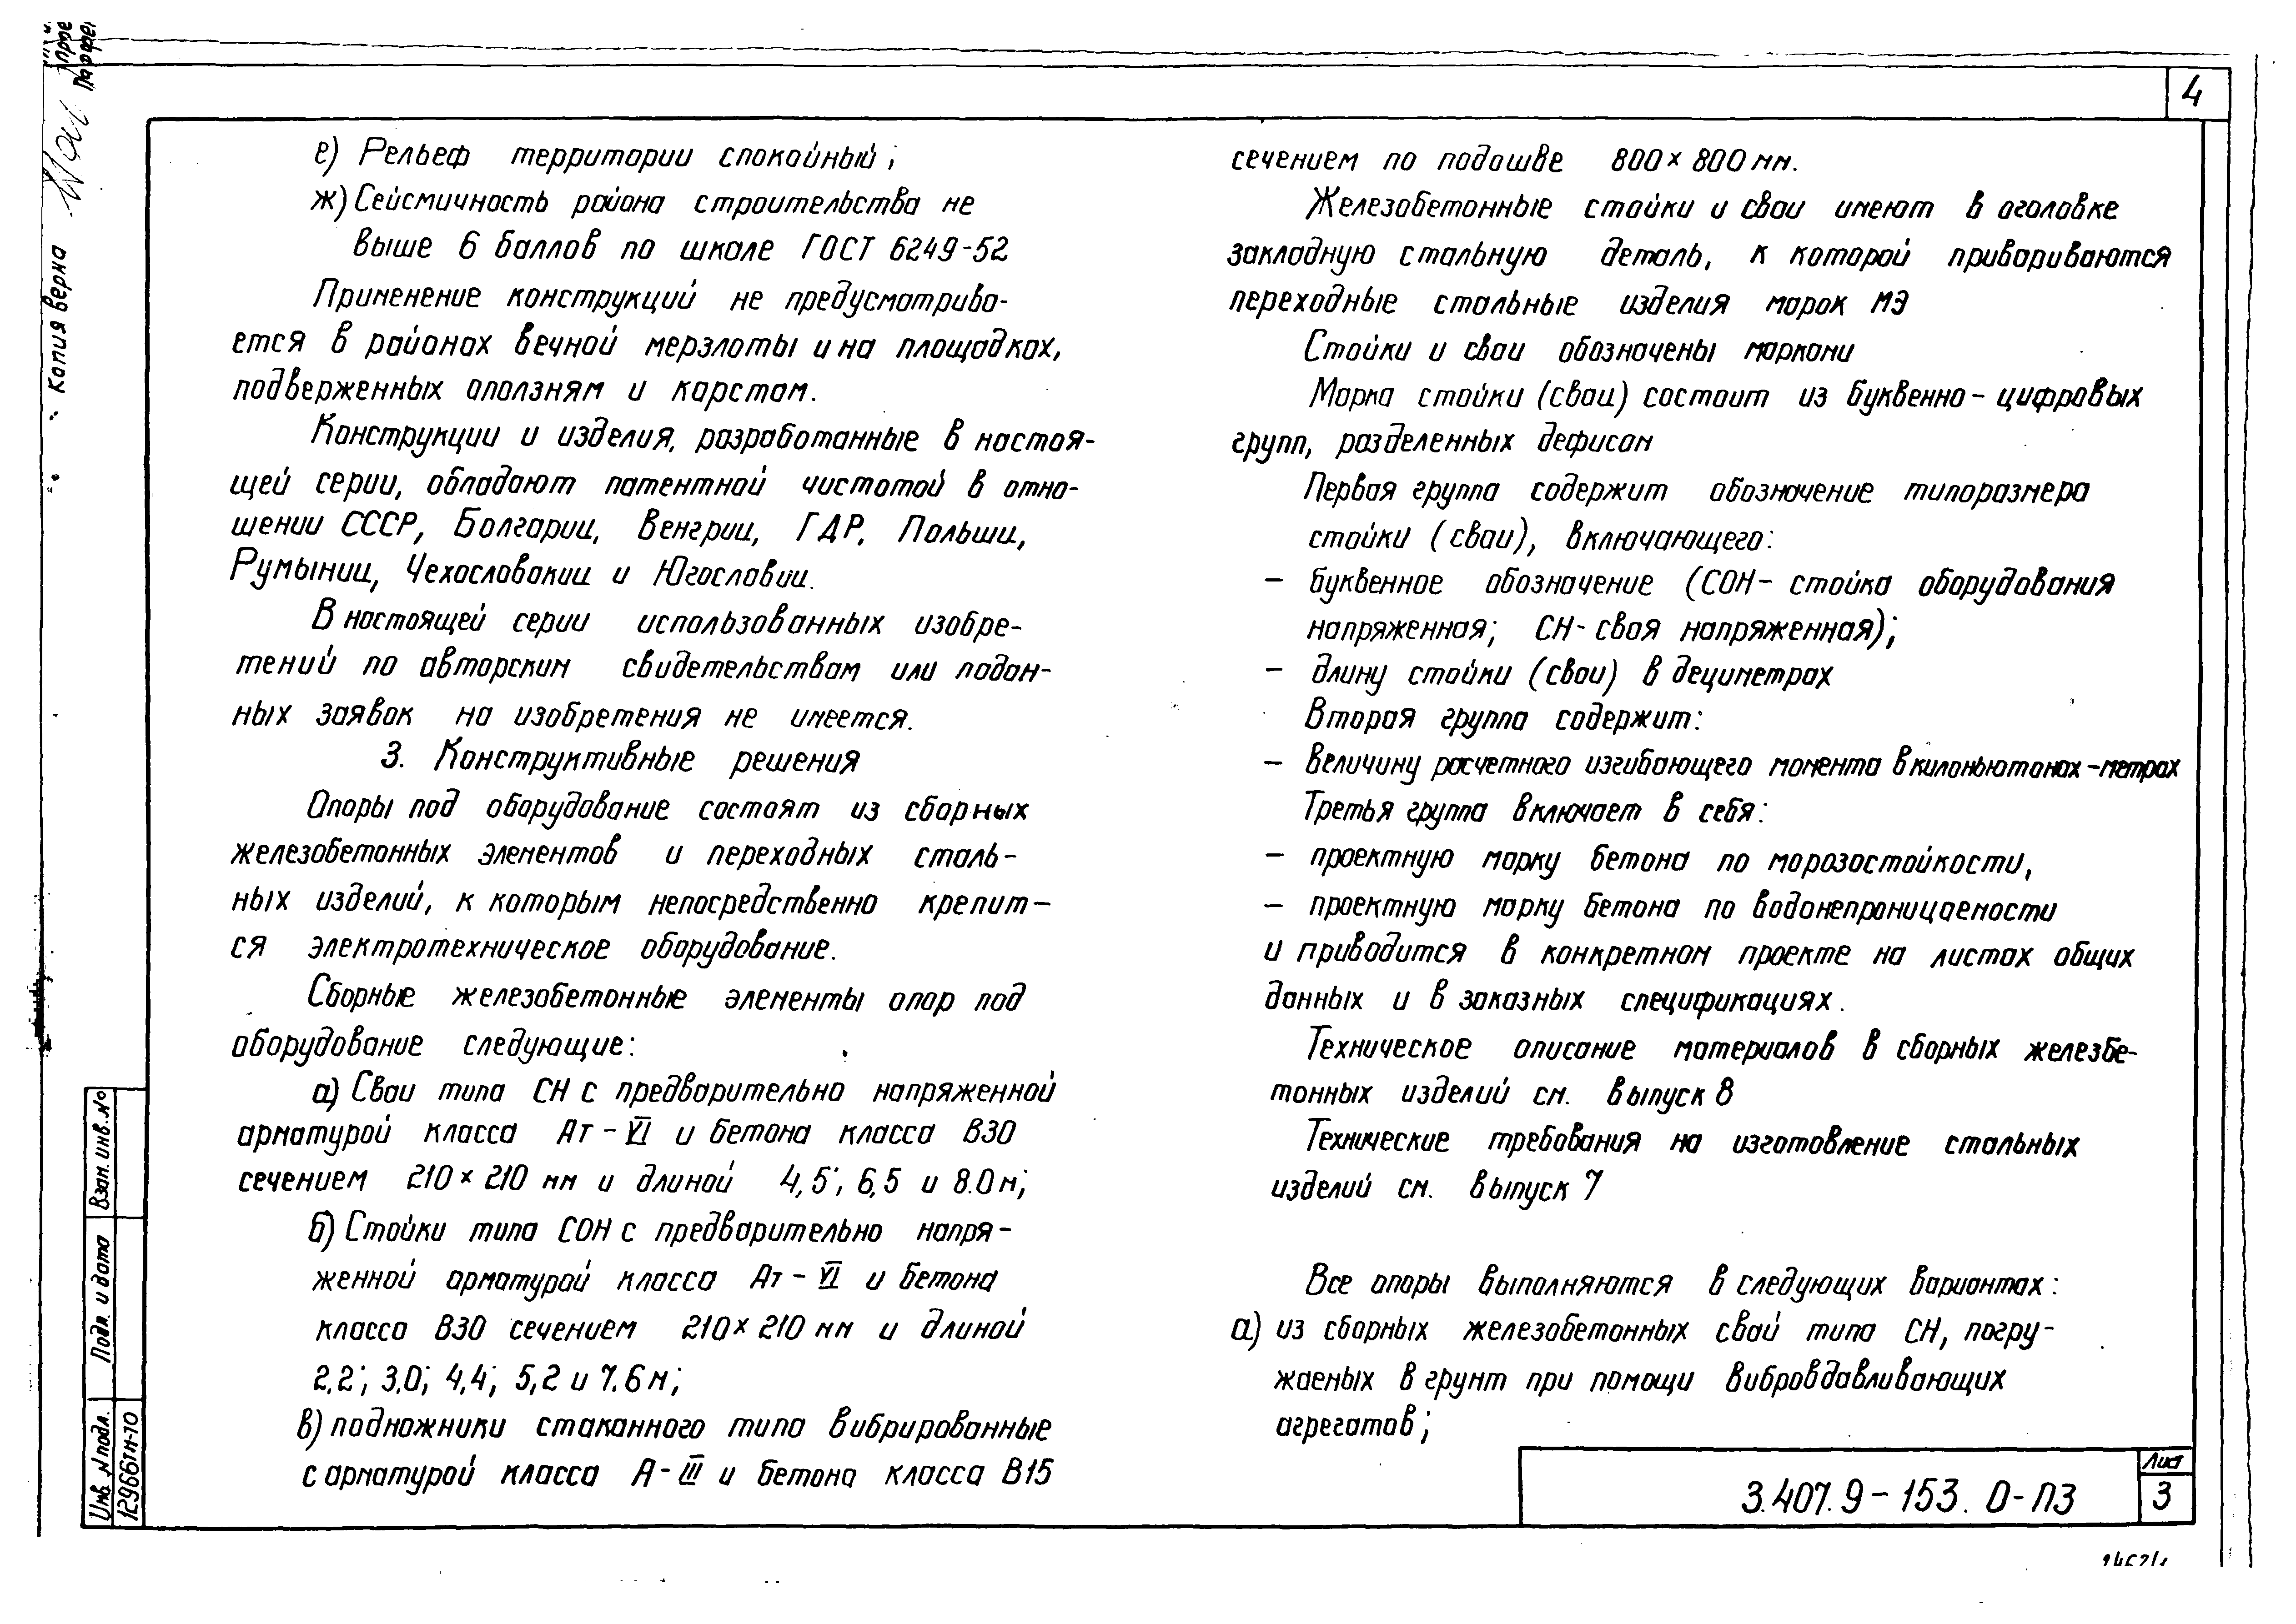 4
е) Рельеф территории спокойный;
ж) Сейсмичность района строительства не
выше 6 баллов по шкале ГОСТ 6249-52
Применение конструкций не предусматрива-
ется в районах вечной мерзлоты и на площадках,
подверженных оползням и карстам.
Конструкции и изделия, разработанные в настоя-
щей серии, обладают патентной чистотой в отно-
шении СССР, Болгарии, Венгрии, ГДР, Польши,
Румынии, Чехословакии и Югославии.
В настоящей серии использованных изобре-
тений по авторским свидетельствам или подан-
ных заявок на изобретения не имеется.
3. Конструктивные решения
Опоры под оборудование состоят из сборных
железобетонных элементов и переходных сталь-
ных изделий, к которым непосредственно крепит-
ся электротехническое оборудование.
Сборные железобетонные элементы опор под
оборудование следующие:
а) Сваи типа СН с предварительно напряженной
арматурой класса Ат-VI и бетона класса В30
сечением 210×210 мм и длиной 4,5; 6,5 и 8.0 м;
б) Стойки типа СОН с предварительно напря-
женной арматурой класса Ат-VI и бетона
класса В30 сечением 210×210 мм и длиной
2,2; 3,0; 4,4; 5,2 и 7.6 м;
в) подножники стаканного типа вибрированные
с арматурой класса А-III и бетона класса В15
сечением по подошве 800×800 мм.
Железобетонные стойки и сваи имеют в оголовке
закладную стальную деталь, к которой привариваются
переходные стальные изделия марок МЭ
Стойки и сваи обозначены марками
Марка стойки (сваи) состоит из буквенно-цифровых
групп, разделенных дефисом
Первая группа содержит обозначение типоразмера
стойки (сваи), включающего:
- буквенное обозначение (СОН- стойка оборудования
напряженная; СН-свая напряженная);
- длину стойки (сваи) в дециметрах
Вторая группа содержит:
- величину расчетного изгибающего момента в килоньютонах-метрах
Третья группа включает в себя:
- проектную марку бетона по морозостойкости,
- проектную марку бетона по водонепроницаемости
и приводится в конкретном проекте на листах общих
данных и в заказных спецификациях.
Техническое описание материалов в сборных железбе-
тонных изделий см. выпуск 8
Технические требования на изготовление стальных
изделий см. выпуск 7
Все опоры выполняются в следующих вариантах:
а) из сборных железобетонных свай типа СН, погру-
жаемых в грунт при помощи вибровдавливающих
агрегатов;
3.407.9-153. 0-ПЗ
Лист
3
Копия верна
Взам. инв. №
Подп. и дата
Инв. N подл.
12966тм-т0